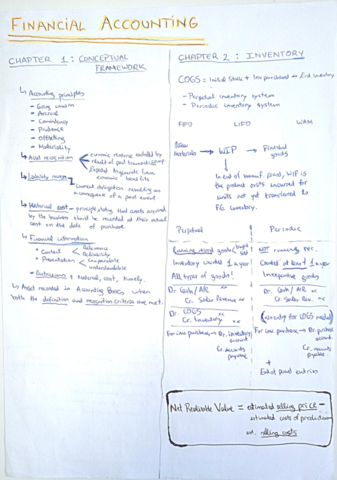 FINANCIAL ACCOUNTING
CHAPTER 1: CONCEPTUAL FRAMEWORK
Accounting principles
- Going concern
- Accrual
- Consistency
- Prudence
- Offsetting
- Materiality
Asset recognition
economic resource controlled by
result of past transactions
Expected future economic benefits
Liability
Current obligation resulting as
consequence of a past event
Historical cost - principle stating that assets acquired
by the business should be recorded at their actual
cost on the date of purchase
Financial information
Content
Relevance
Reliability
Presentation
Comparable
understandable
Material, cost, timely.
Asset recorded in Accounting Books when
both the definition and recognition criteria are met.
CHAPTER 2: INVENTORY
COGS = Initial Stock + Inv purchased - End inventory
- Perpetual inventory system
- Periodic inventory system
FIFO LIFO WAM
Raw materials → WIP → Finished goods
In end of period, WIP is
the product costs incurred for
units not yet transferred to
FG inventory.
Perpetual
Inventory counted 1 a year
All types of goods!
Dr. Cash/AR xx
Cr. Sales Revenue xx
Dr. COGS xx
Cr. Inventory xx
For inv purchase → Dr. inventory account
Cr. accounts payable
Periodic
NOT running rec.
Counted at least 1 a year
Inexpensive goods
Dr. Cash/AR xx
Cr. Sales Rev. xx
(no entry for COGS made)
For inv purchase → Dr. purchase account
Cr. accounts payable
+
End of period entries
Net Realisable Value = estimated selling price -
estimated costs of production
selling costs